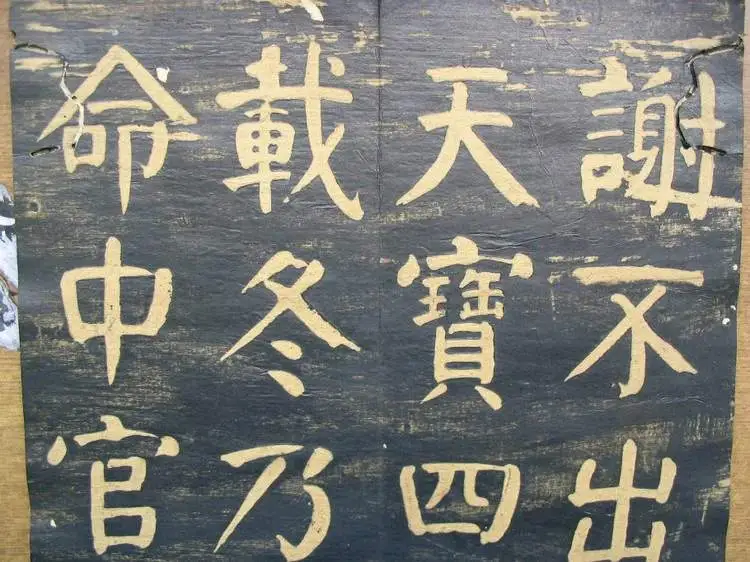 謝不出
天寶四
載冬乃
命中官